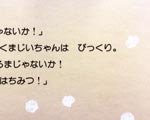 ゃないか！」
くまじいちゃんは　びっくり。
るまじゃないか！
はちみつ！」